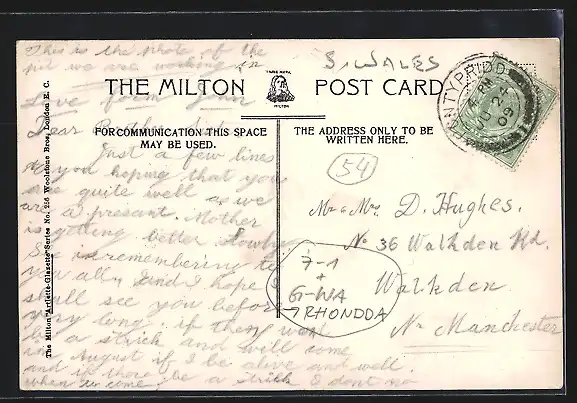 This is the photo of the
pit we are working in
S. WALES
THE MILTON POST CARD
TRADE MARK
MILTON
PONTYPRIDD
JU 24
09
Love from John
FOR COMMUNICATION THIS SPACE
MAY BE USED.
THE ADDRESS ONLY TO BE
WRITTEN HERE.
The Milton "Artlette-Glazette" Series No. 256 Woolstone Bros., London E. C.
Dear Brother
Just a few lines
to you hoping that you
are quite well as we
are a present. Mother
is getting better slowly
She is remembering to
you all, and I hope I
shall see you before
very long. if there
be a strick and will come
in August if I be alive and well.
and if there be a strick I dont no
when to come
54
Mr & Mrs D. Hughes.
No 36 Walkden Rd.
Walkden.
Nr Manchester
7-1
+
G-WA
RHONDDA